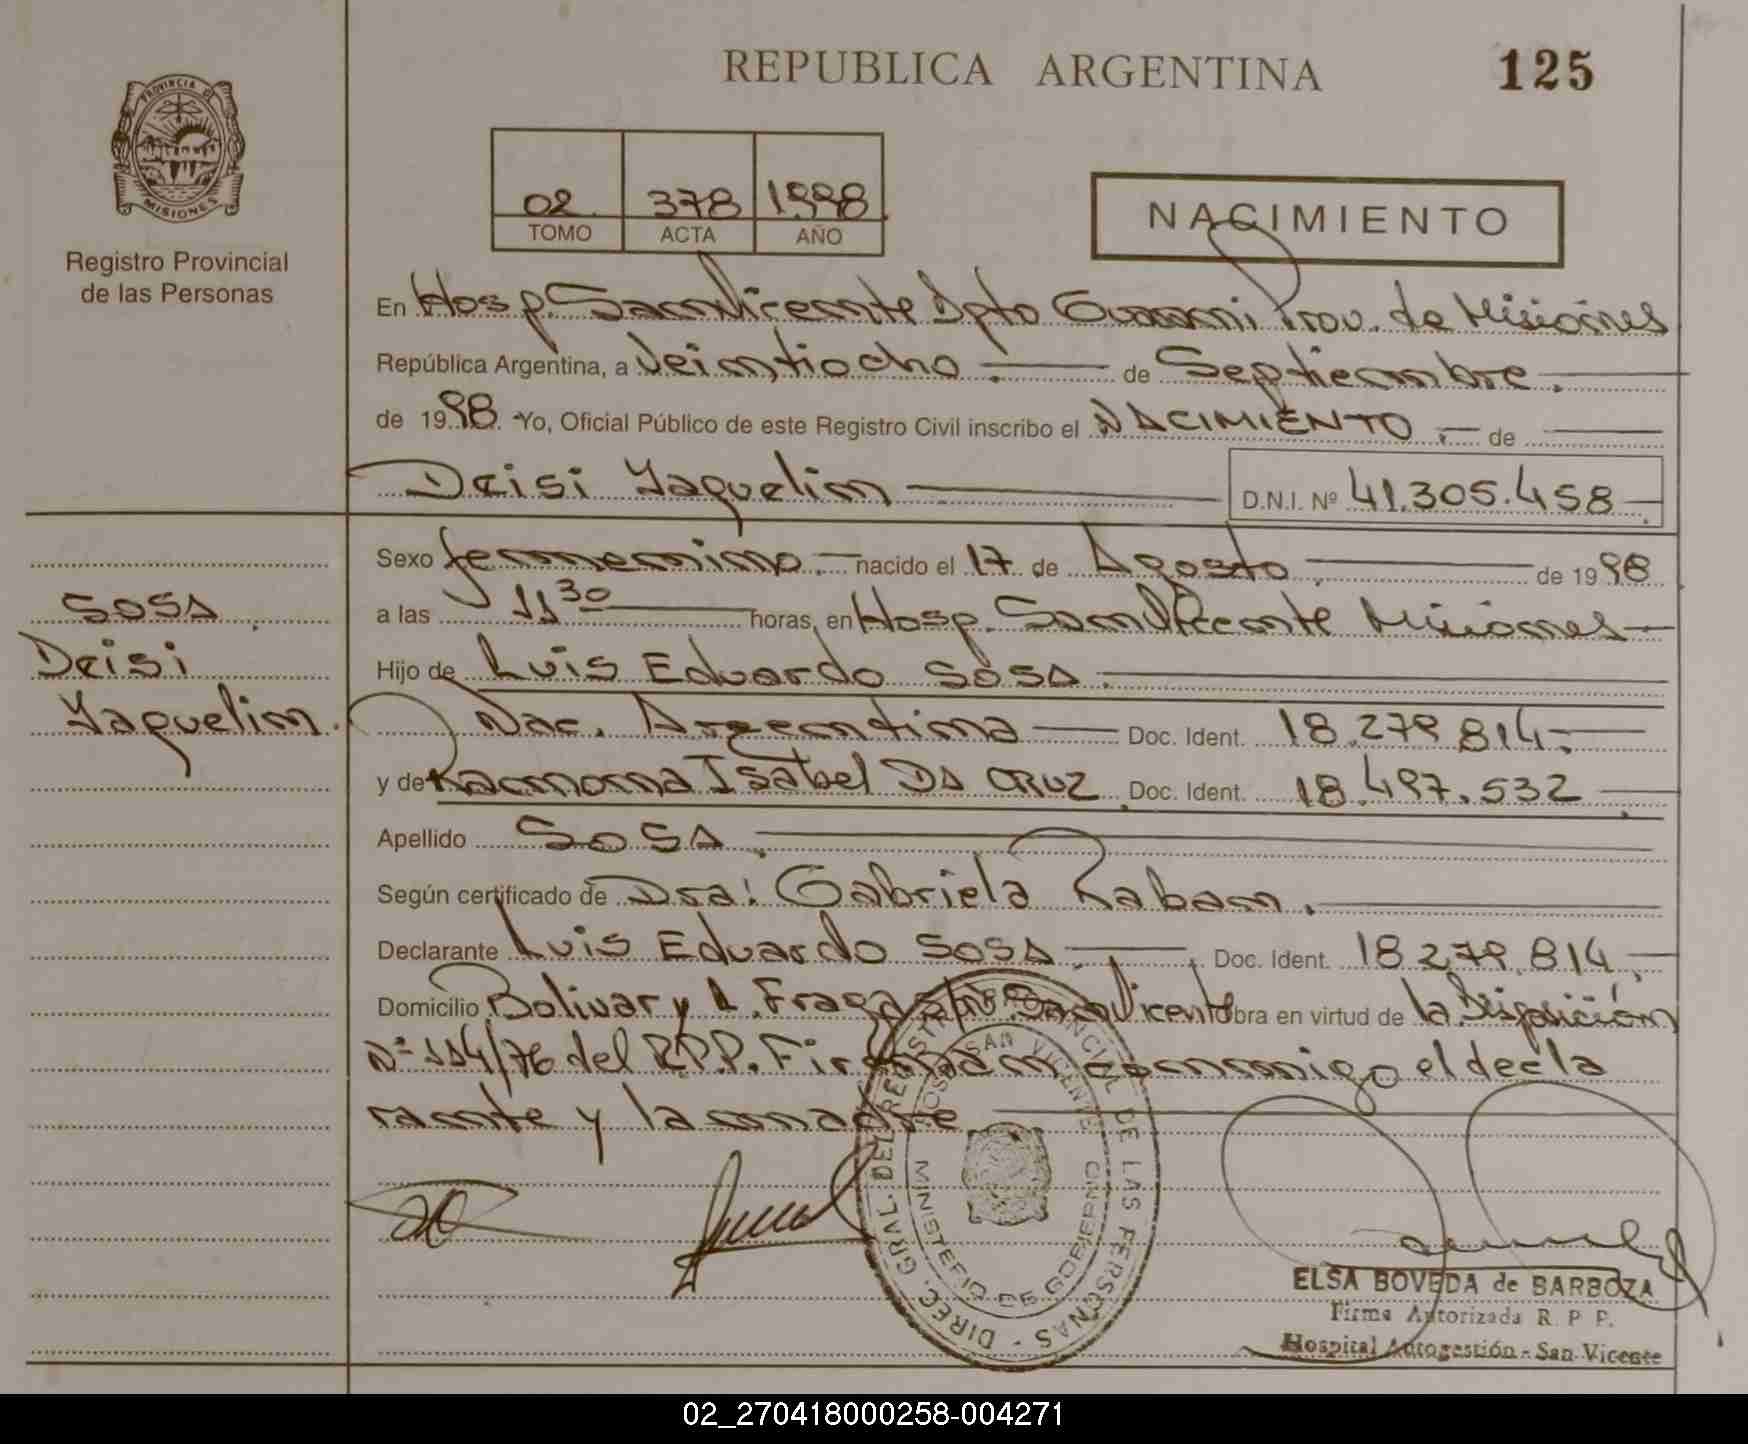 REPUBLICA ARGENTINA 125
PROVINCIA DE
MISIONES
Registro Provincial
de las Personas
02 378 1998
TOMO ACTA AÑO
NACIMIENTO
En Hosp. San Vicente Dpto Guarani Prov. de Misiones
República Argentina, a Veintiocho.— de Septiembre.—
de 1998. Yo, Oficial Público de este Registro Civil inscribo el NACIMIENTO.— de —
Deisi Yaquelin — D.N.I. Nº 41.305.458 —
Sexo femenino.— nacido el 17 de Agosto.— de 1998
a las 11 30 — horas, en Hosp. San Vicente Misiones —
Hijo de Luis Eduardo SOSA.—
Nac. Argentina — Doc. Ident. 18.279.814.—
y de Ramona Isabel DA CRUZ. Doc. Ident. 18.497.532.—
Apellido SOSA.—
Según certificado de Dra: Gabriela Raban.—
Declarante Luis Eduardo SOSA.— Doc. Ident. 18.279.814.—
Domicilio Bolivar y A. Fraga San Vicente obra en virtud de la Disposición
Nº 114/76 del R.P.P. Firman conmigo el decla
rante y la madre —
SOSA.
Deisi
Yaquelin.
DIREC. GRAL DEL REGISTRO PROVINCIAL DE LAS PERSONAS
HOSP. SAN VICENTE
MINISTERIO DE GOBIERNO
ELSA BOVEDA de BARBOZA
Firma Autorizada R. P. P.
Hospital Autogestión - San Vicente
02_270418000258-004271